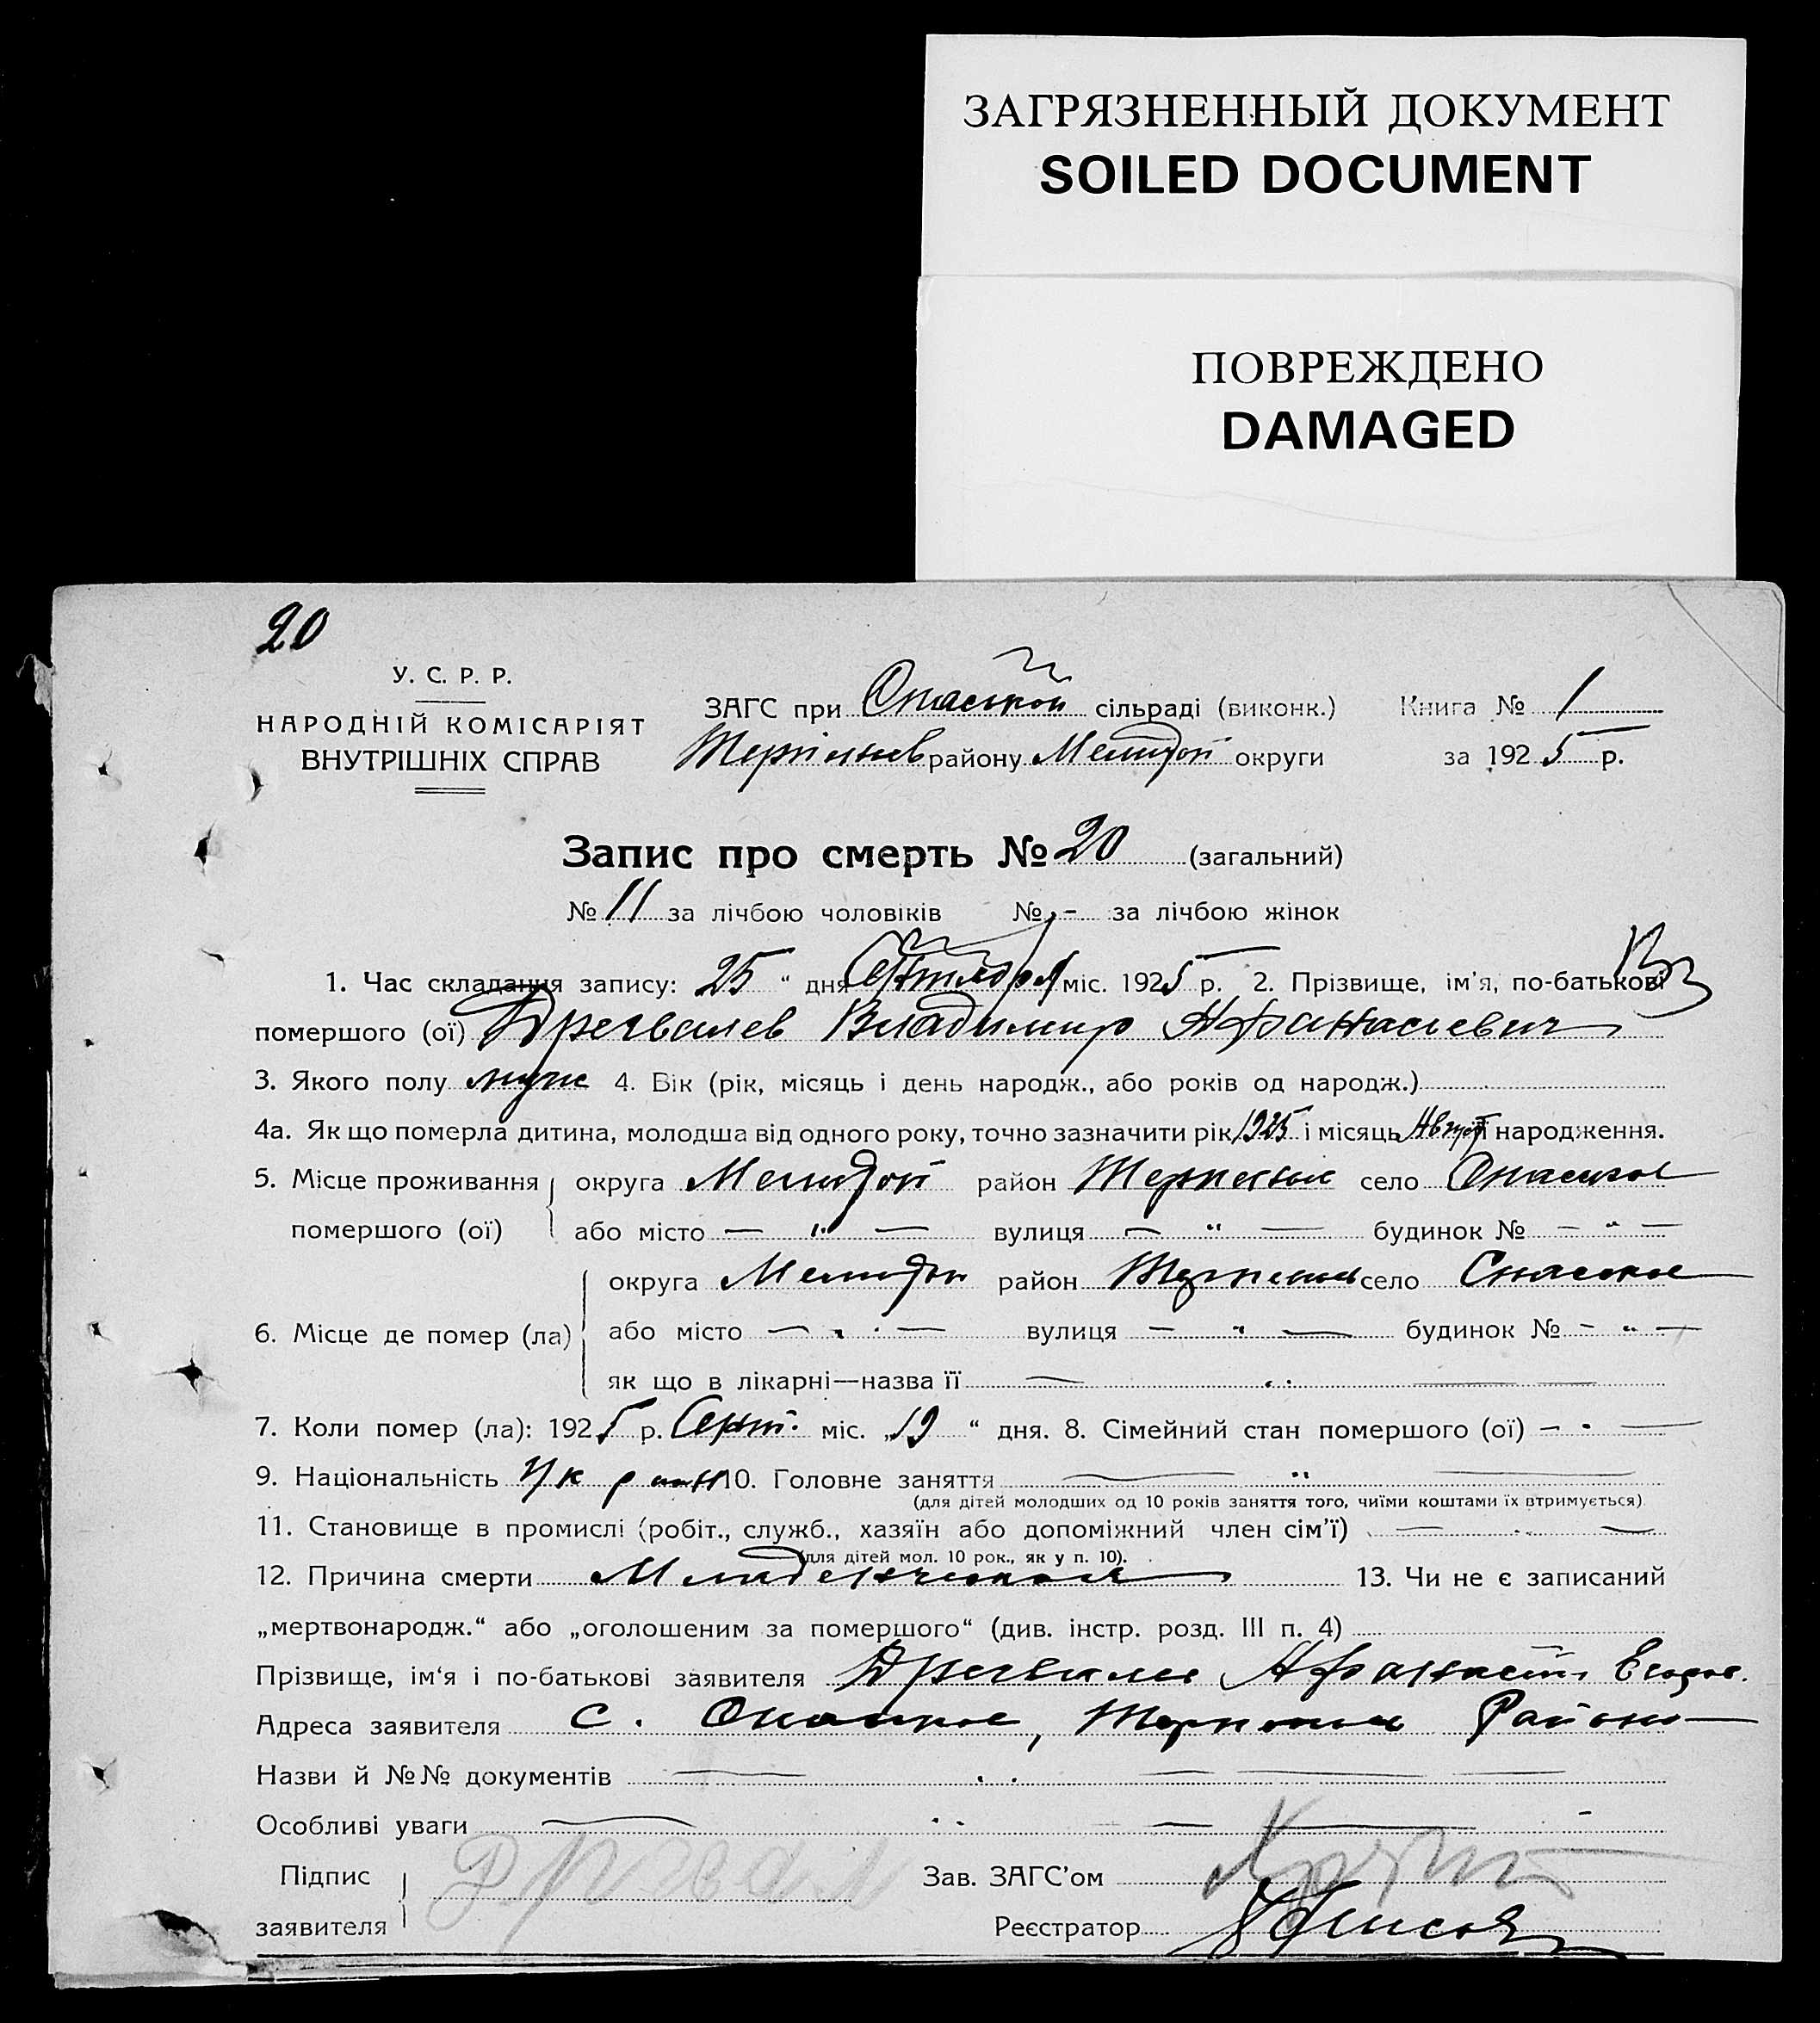 ЗАГРЯЗНЕННЫЙ ДОКУМЕНТ
SOILED DOCUMENT
ПОВРЕЖДЕНО
DAMAGED
20
У. С. Р. Р.
НАРОДНІЙ КОМІСАРІЯТ
ВНУТРІШНІХ СПРАВ
ЗАГС при Спаской сільраді (виконк.) Книга № 1
району округи за 1925 р.
Запис про смерть № 20 (загальний)
№ 11 за лічбою чоловіків № - за лічбою жінок
1. Час складання запису: 25 " дня Октября міс. 1925 р. 2. Прізвище, ім'я, по-батькові
помершого (ої) Владимир Афанасьевич
3. Якого полу муж 4. Вік (рік, місяць і день народж., або років од народж.)
4а. Як що померла дитина, молодша від одного року, точно зазначити рік 1925 і місяць Август народження.
5. Місце проживання округа район село Спаское
помершого (ої) або місто — " — вулиця — " — будинок № — " —
округа район село Спаское
6. Місце де помер (ла) або місто — " — вулиця — " — будинок № — " —
як що в лікарні—назва її — " —
7. Коли помер (ла): 1925 р. Сент. міс. „19 " дня. 8. Сімейний стан помершого (ої) — " —
9. Національність 10. Головне заняття — " —
(для дітей молодших од 10 років заняття того, чиїми коштами їх втримується)
11. Становище в промислі (робіт., служб., хазяїн або допоміжний член сім'ї) — " —
(для дітей мол. 10 рок., як у п. 10).
12. Причина смерти Младенческая 13. Чи не є записаний
„мертвонародж." або „оголошеним за помершого" (див. інстр. розд. III п. 4)
Прізвище, ім'я і по-батькові заявителя Афанасий Егоров.
Адреса заявителя с. Спаское, Района
Назви й №№ документів — " —
Особливі уваги — " —
Підпис Зав. ЗАГС'ом
заявителя Реєстратор